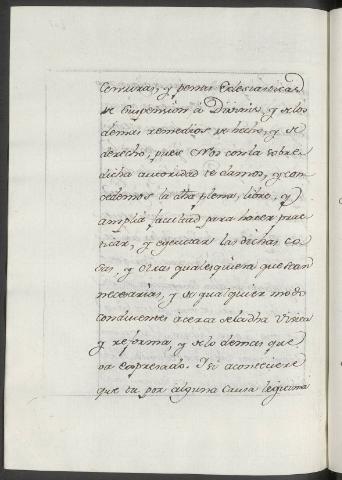 Censuras, y penas Eclesiasticas
de suspension à Divinis, y de los
demas remedios de hecho, y de
derecho, pues Nos con la sobre
dicha autoridad te damos, y con
cedemos la dha plena, libre, y
amplia facultad para hacer prac
ticar, y egecutar las dichas co
sas, y otras qualesquiera que sean
necesarias, y de qualquier modo
conducentes à cerca de la dha Visita
y reforma, y de lo demas que
va expresado. Y si aconteciere
que tu por alguna Causa legitima